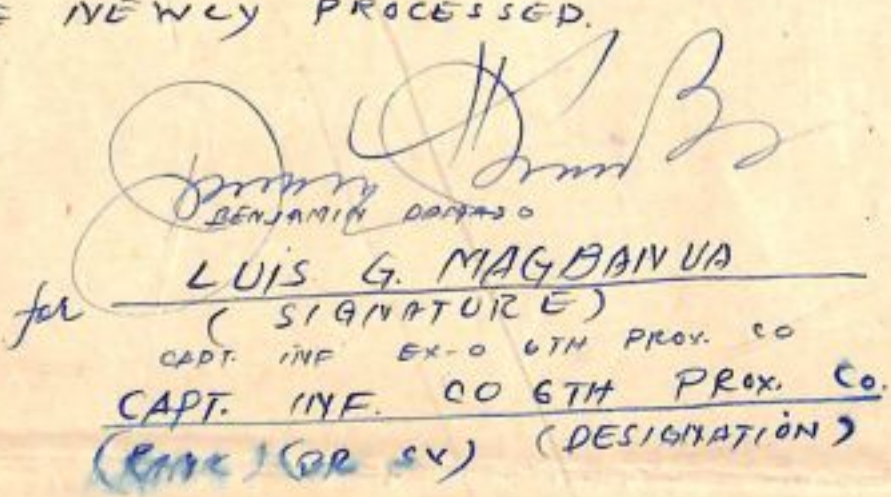 NEWLY PROCESSED.
BENJAMIN DAMASO
LUIS G. MAGBANUA
for
( SIGNATURE )
CAPT. INF EX-O 6TH PROV. CO
CAPT. INF. CO 6TH PROV. Co.
(RANK) (BR SV) (DESIGNATION)